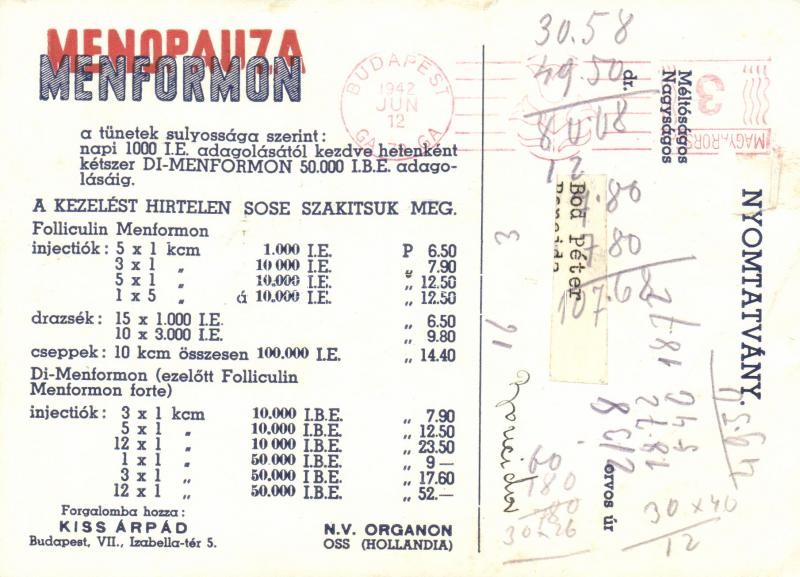 MENOPAUZA
MENFORMON
a tünetek sulyossága szerint:
napi 1000 I.E. adagolásától kezdve hetenként
kétszer DI-MENFORMON 50.000 I.B.E. adago-
lásáig.
A KEZELÉST HIRTELEN SOSE SZAKITSUK MEG.
Folliculin Menformon
injectiók: 5 x 1 kcm 1.000 I.E. P 6.50
3 x 1 „ 10 000 I.E. „ 7.90
5 x 1 „ 10.000 I.E. „ 12.50
1 x 5 „ á 10.000 I.E. „ 12.50
drazsék: 15 x 1.000 I.E. „ 6.50
10 x 3.000 I.E. „ 9.80
cseppek: 10 kcm összesen 100.000 I.E. „ 14.40
Di-Menformon (ezelőtt Folliculin
Menformon forte)
injectiók: 3 x 1 kcm 10.000 I.B.E. „ 7.90
5 x 1 „ 10.000 I.B.E. „ 12.50
12 x 1 „ 10 000 I.B.E. „ 23.50
1 x 1 „ 50.000 I.B.E. „ 9 —
3 x 1 „ 50.000 I.B.E. „ 17.60
12 x 1 „ 50.000 I.B.E. „ 52.—
Forgalomba hozza:
KISS ÁRPÁD
Budapest, VII., Izabella-tér 5.
N.V. ORGANON
OSS (HOLLANDIA)
BUDAPEST
1942
JUN
12
3
NYOMTATVÁNY.
Méltóságos
Nagyságos
dr.
Bod Péter
orvos úr
30.58
49.50
12
107.68
3
16
60
180
30 x 40
12